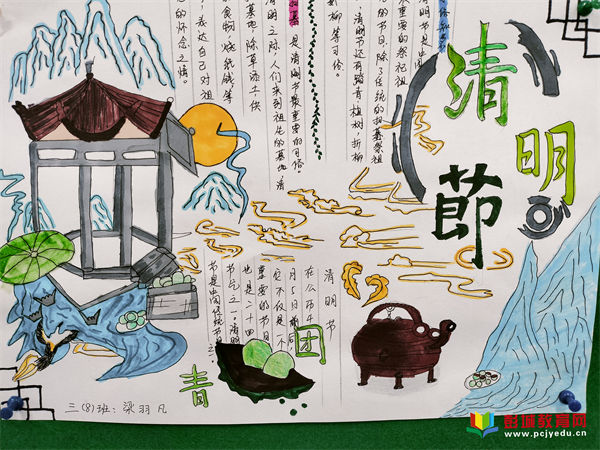 清明節
最重要的祭祀祖
的节日,除了传统的扫墓祭祖
清明节还有踏青植树,折柳
柳等习俗。
是清明节最重要的习俗。
清明之际,人们来到祖先的墓地,清
墓地,除草添土,供
食物,烧纸钱等
表达自己对祖
的怀念之情。
清明节
在公历4
月5日前后,
它不仅是一个
重要的节日
也是二十四
节气之一。清明
节是中国传统节
青团
三(8)班:梁羽凡
彭城教育网
www.pcjyedu.cn